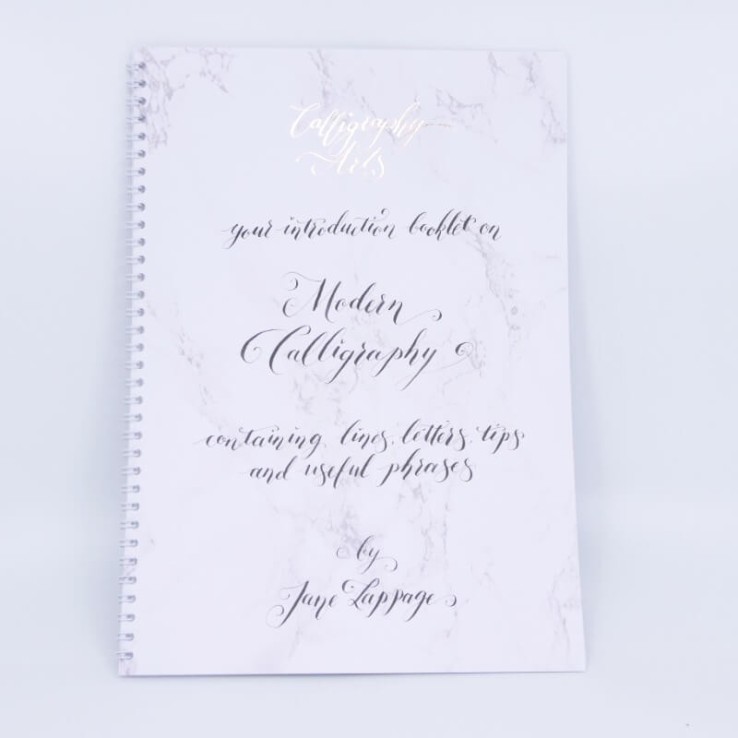 Calligraphy
Arts
your introduction booklet on
Modern
Calligraphy
containing lines, letters, tips
and useful phrases
by
Jane Lappage